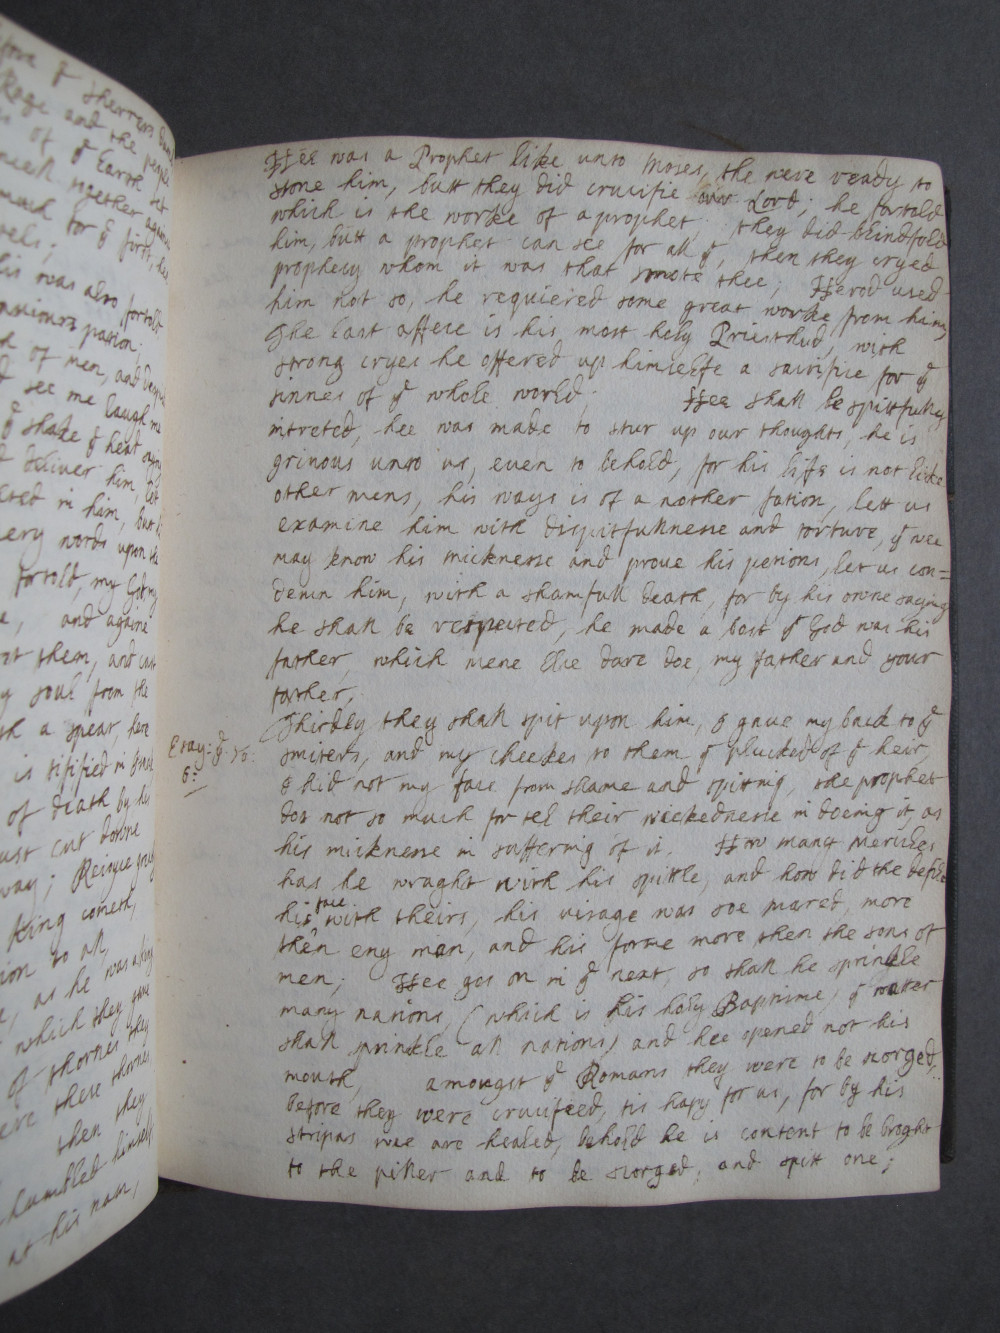 fore of ye sherrers
Rage and the people
of ye Earth set
together against
for ye first, he
his was also fortold
saviours passion;
of men, and
see me laugh me
ye shake ye head
deliver him, let
in him, but
very words upon the
fortold, my God my
and againe
them, and cast
my soul from the
with a spear, here
is
of death by his
cut downe
way; Reioyce
King cometh,
to all,
as he was a king
which they
of thornes they
these thornes
then they
humbled himself
at his
HHee was a Prophet like unto Moses, the were ready to
stone him, butt they did crucifie our Lord; he fortold
which is the worke of a prophet; they did blindfold
him, butt a prophet can see for all yt, then they cryed
prophecy whom it was that smote thee; HHerod used
him not so, he requiered some great worke from him,
The last offece is his most holy Priesthud, with
strong cryes he offered up himselfe a sacrifice for ye
sinnes of ye whole world. HHee shall be spittfully
intreted, hee was made to stur up our thoughts, he is
grivous unto us, even to behold, for his life is not like
other mens, his ways is of a nother fation, lett us
examine him with dispitfullnesse and torture, yt wee
may know his micknesse and prove his petions, let us con=
demn him, with a shamfull death, for by his owne saying
he shall be respected, he made a bost yt God was his
father, which mene Else dare doe, my father and your
father,
Thirdly they shall spit upon him, I gave my back to ye
Esay: ye 50: smiters, and my cheekes to them yt plucked of ye heir,
6: I hid not my face from shame and spitting, the prophet
dos not so much for tel their wickednesse in doeing it, as
his micknesse in suffering of it. How many mericles
has he wraght with his spittle, and how did the defile
his face with theirs, his visage was soe mared, more
then eny man, and his forme more then the sons of
men; HHee gos on in ye next, so shall he sprinkle
many nations, (which is his holy Baptisme) yt water
shall sprinkle all nations, and hee opened not his
mouth, amongst ye Romans they were to be scorged,
before they were crucifeed, tis hapy for us, for by his
stripas wee are healed, behold he is content to be broght
to the piller and to be scorged, and spitt one;